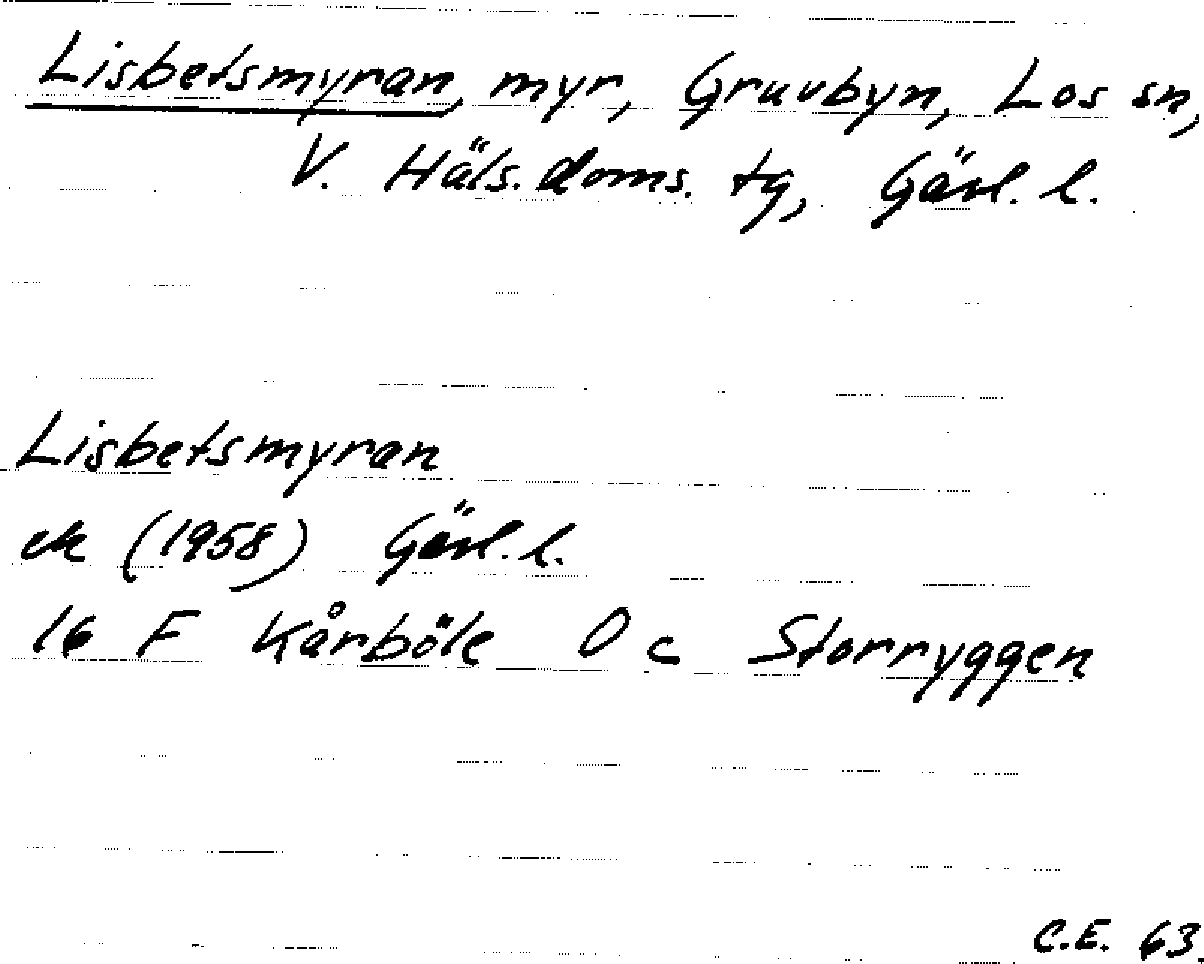 Lisbetsmyran, myr, Gruvbyn, Los sn,
V. Häls. doms. tg, Gävl. l.
Lisbetsmyran
ek (1958) Gävl. l.
16 F Kårböle O c Storryggen
C.E. 63.